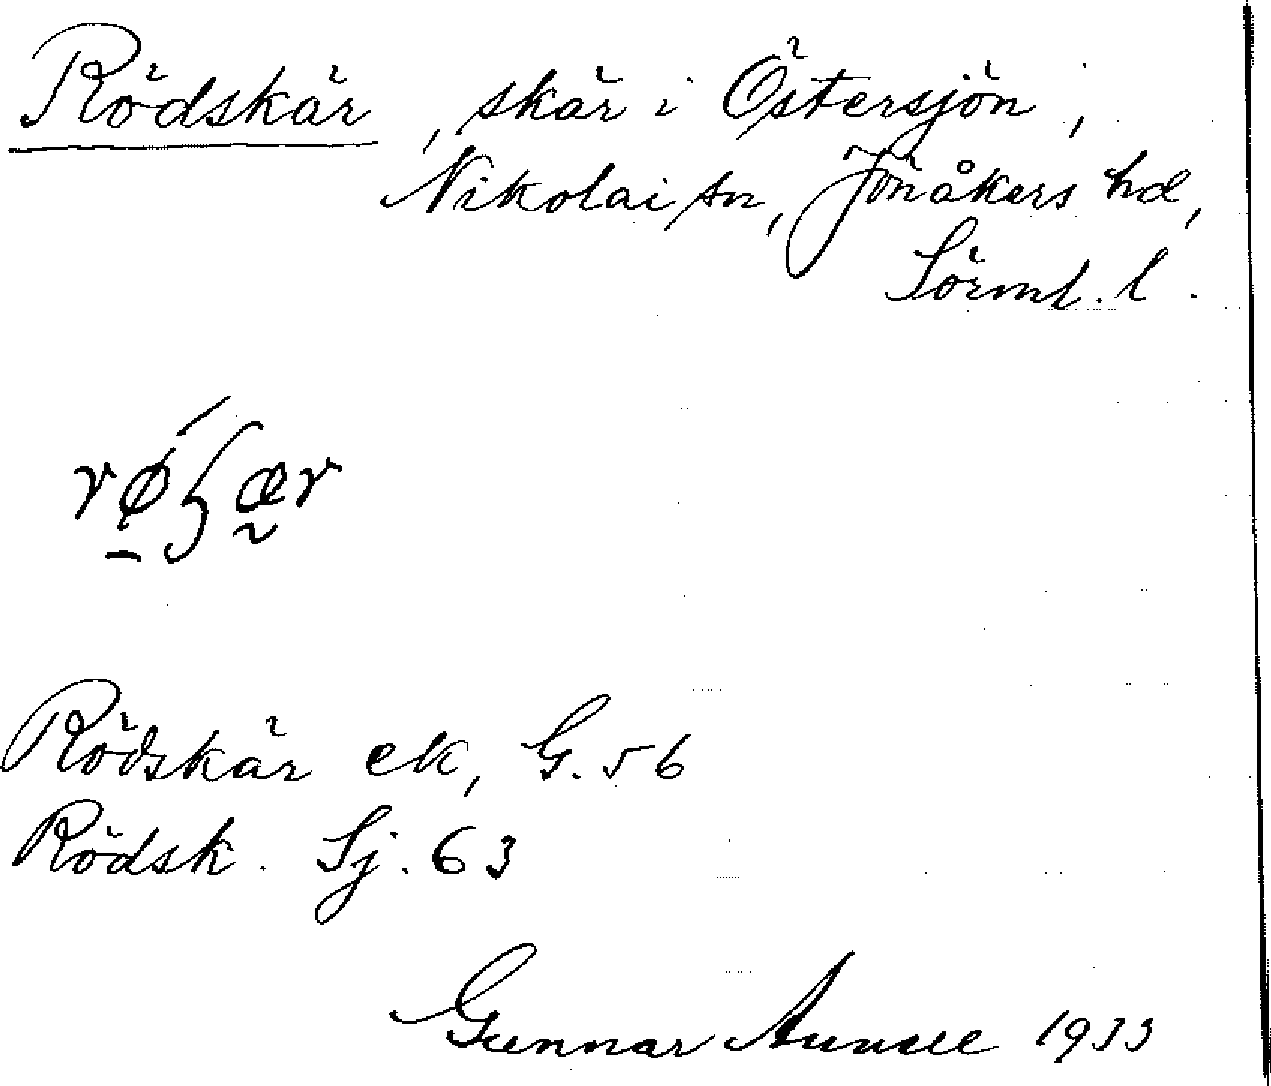 Rödskär, skär i Östersjön,
Nikolai sn, Jönåkers hd,
Sörml. l.
Rödskär ek, G. 56
Rödsk. Sj. 63
Gunnar 1933